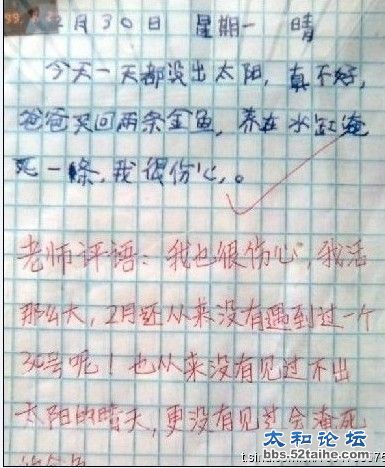 99
2月30日 星期一 晴
今天一天都没出太阳,真不好,
爸爸买回两条金鱼,养在水缸淹
死一條,我很伤心。
老师评语:我也很伤心,我活
那么大,2月还从来没有遇到过一个
30号呢!也从来没有见过不出
太阳的晴天,更没有见过会淹死
的金鱼
太和论坛
bbs.52taihe.com